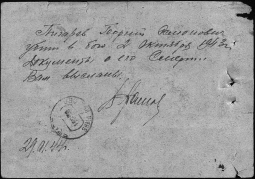 Писарев Георгий Семенович
убит в бою 2 октября 1943г.
Документы о его смерти
Вам высланы.
29.VI.44г.